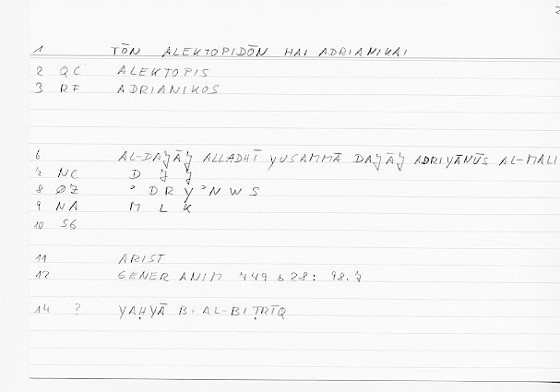 1 TŌN ALEKTOPIDŌN HAI ADRIANIKAI
2 QC ALEKTOPIS
3 RF ADRIANIKOS
6 AL-DAJ̌ĀJ̌ ALLADHĪ YUSAMMĀ DAJ̌ĀJ̌ ADRIYĀNŪS AL-MALI
7 NC D J̌ J̌
8 ØZ ʾ D R Y ʾ N W S
9 NA M L K
10 SG
11 ARIST
12 GENER ANIM 749 b 28: 98.7
14 ? YAḤYĀ B. AL-BIṬRĪQ